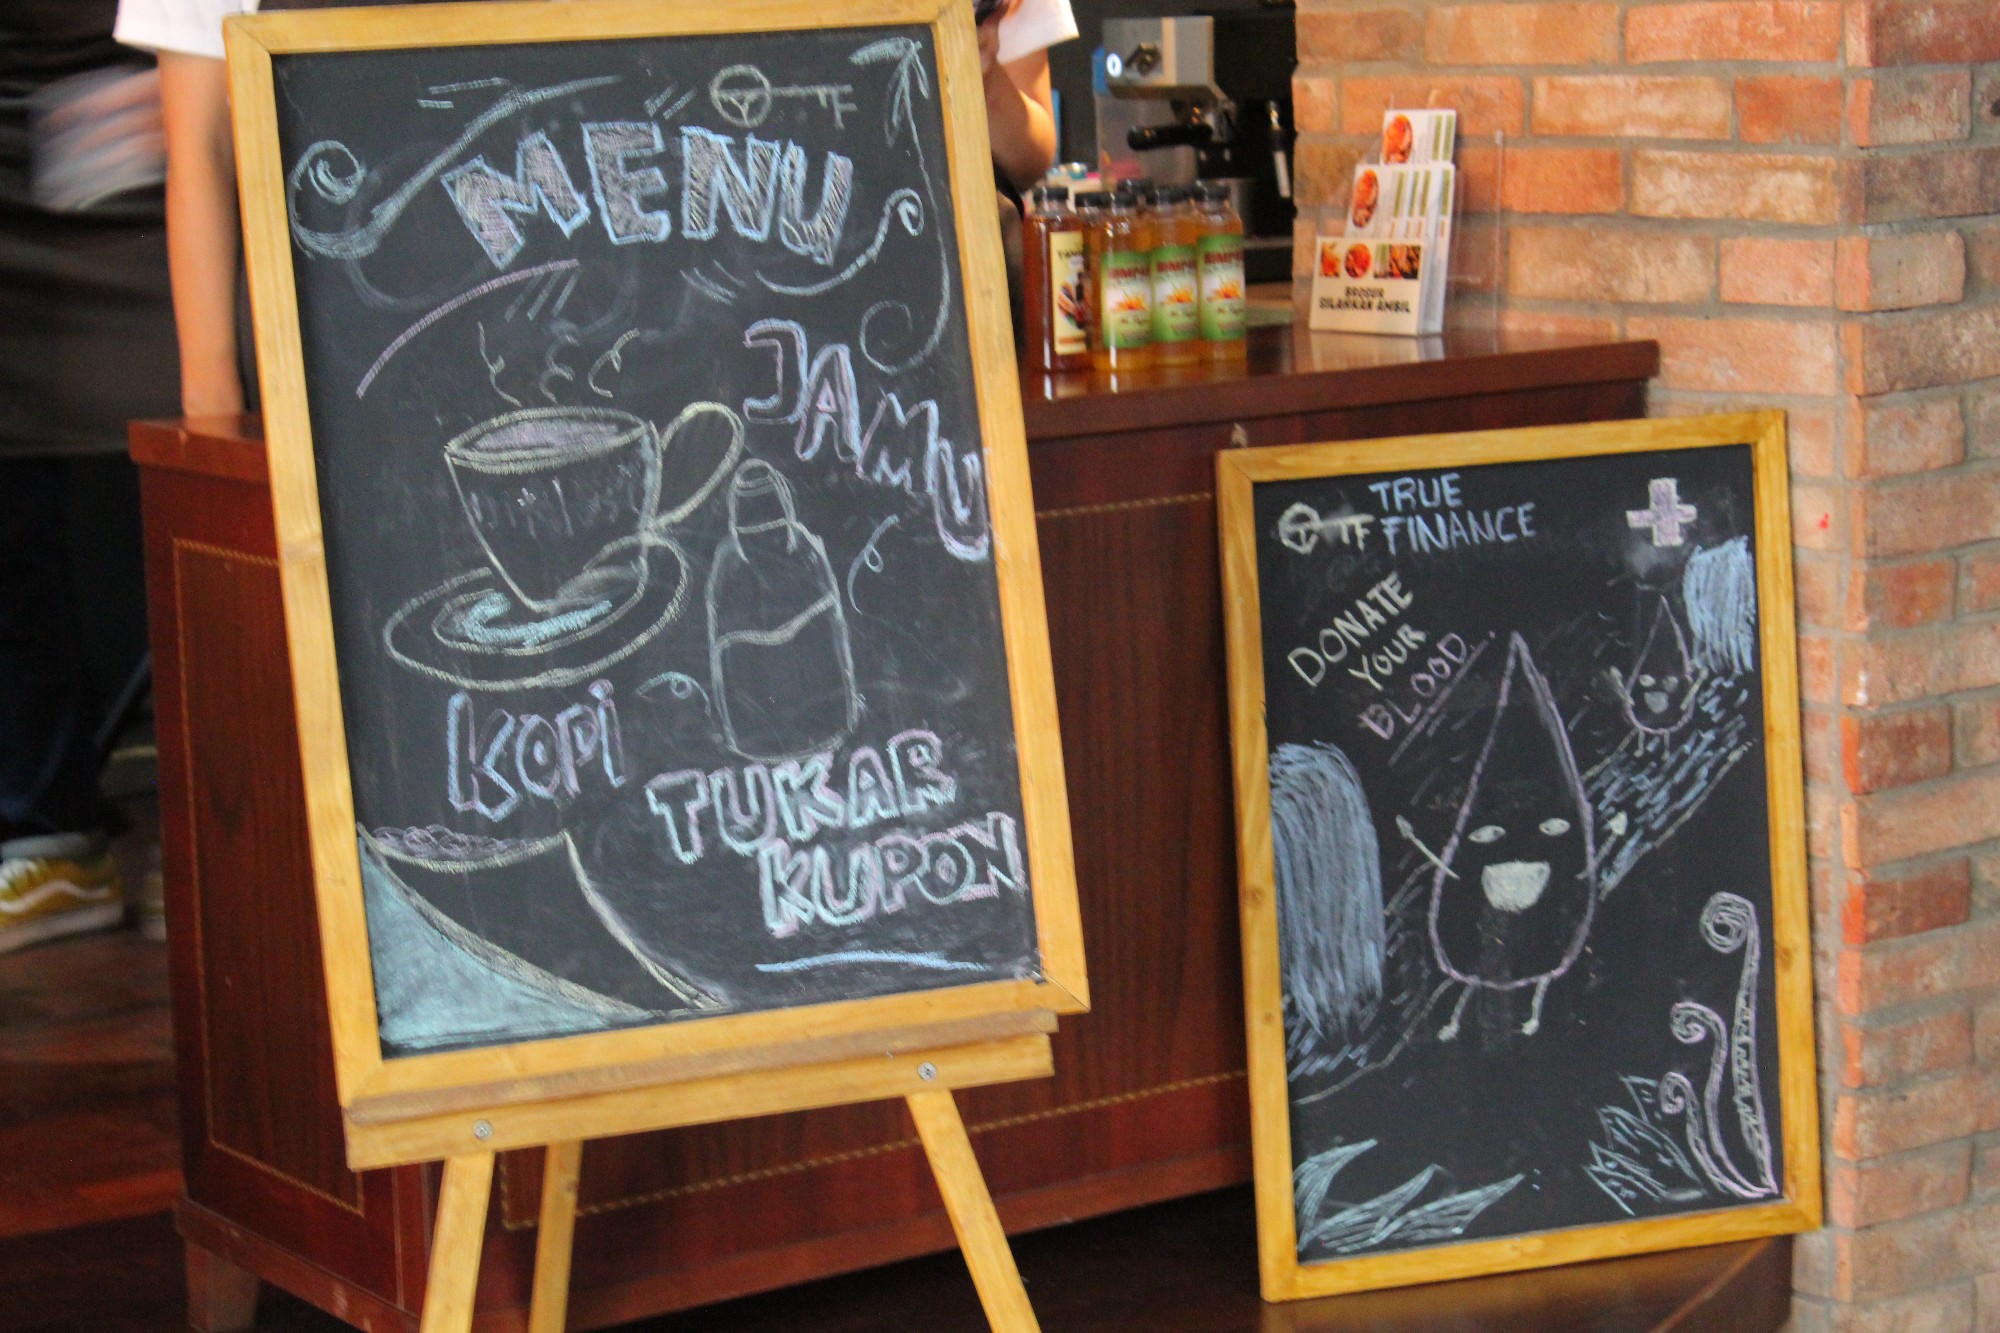 TF
MENU
JAMU
KOPI
TUKAR
KUPON
BROSUR
SILAHKAN AMBIL
TF
TRUE
FINANCE
DONATE
YOUR
BLOOD